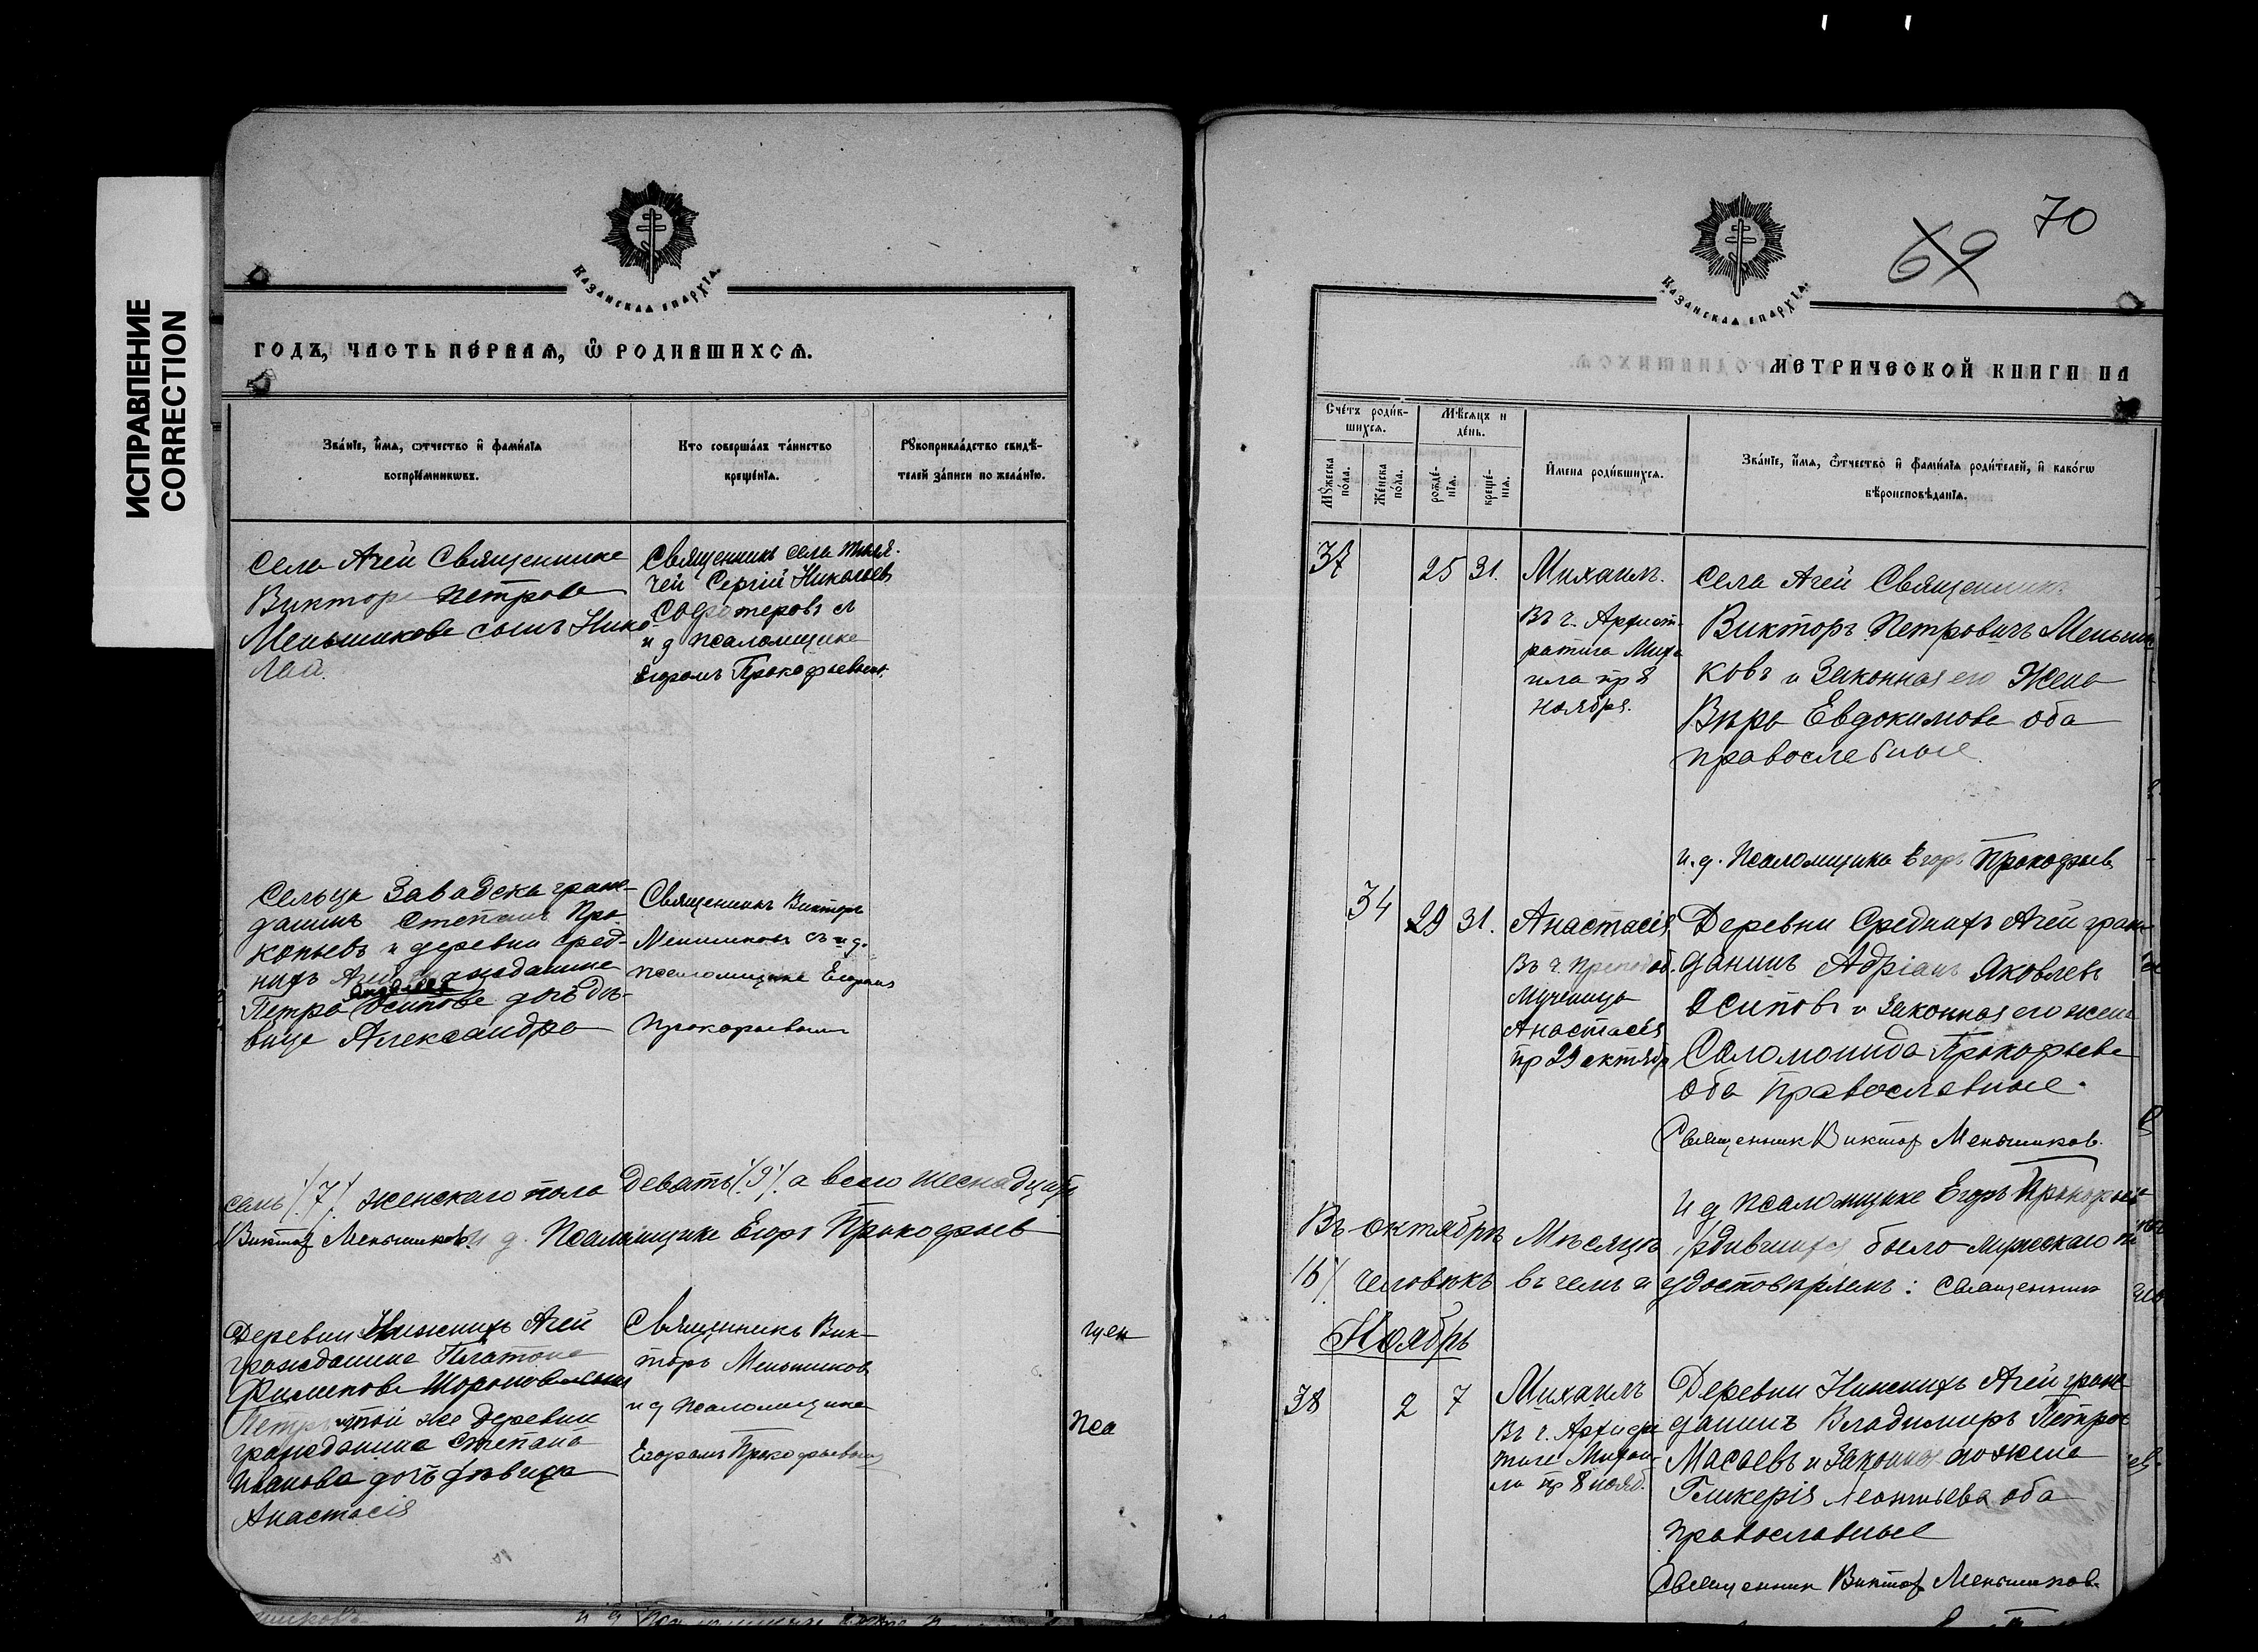 ИСПРАВЛЕНИЕ
CORRECTION
КАЗАНСКАѦ ЕПАРХІѦ.
ГОДЪ, ЧАСТЬ ПЕ́РВАѦ, Ѿ РОДИВШИХСѦ.
Зва́нїе, и҆́мѧ, ѻтчество и҆ фами́лїѧ
воспрїе́мникѡвъ.
Кто соверша́лъ та́инство
креще́нїѧ.
Рꙋкоприкла́дство свидѣ́-
телей за́писи по жела́нїю.
Села Ачей Священника
Виктора Петрова
Меньшикова сынъ Нико
лай.
Священникъ села
чей Сергій Николаевъ
и д псаломщика
Егоромъ Прокофьевымъ.
Сельца Заводска граж-
данинъ Степанъ Про
копьевъ и деревни Сред-
нихъ Ачей гражданина
Петра Осипова дочь дѣ-
вица Александра
Священникъ Викторъ
Меншиковъ съ и д.
псаломщика Егоромъ
Прокофьевымъ
семь /.7./ женскаго пола девять /.9/. а всего шеснадцать
Виктор Меньшиков. И д. Псаломщика Егоръ Прокофьев
Деревни Нижнихъ Ачей
гражданина Платона
Филипова
Петръ и той же деревни
гражданина Степана
Иванова дочь дѣвица
Анастасія
Священникъ Вик-
торъ Меньшиков
и д псаломщика
Егоромъ Прокофьевым
щен
Пса
70
69
КАЗАНСКАѦ ЕПАРХІѦ.
МЕТРИЧЕСКОЙ КНИГИ НА
Сче́тъ роди́в-
шихсѧ.
Мꙋ́жеска
по́ла.
Же́нска
по́ла.
Мѣ́сѧцъ и
де́нь.
рожде́-
нїѧ.
креще́-
нїѧ.
И҆мена роди́вшихсѧ.
Зва́нїе, и҆́мѧ, ѻ҆́тчество и҆ фами́лїѧ роди́телей, и҆ како́гѡ
вѣроисповѣ́данїѧ.
37 25 31. Михаилъ.
Въ ч. Архист-
ратига Миха
ила пр 8
ноября.
Села Ачей Священникъ
Викторъ Петровичъ Меньши
ковъ и Законная его Жена
Вѣра Евдокимова оба
православные.
и.д. Псаломщика Егоръ Прокофьев
34 29 31. Анастасія
Въ ч. Преподоб.
Мученицы
Анастасія
пр 29 октября
Деревни Среднихъ Ачей граж
данинъ Адріанъ Яковлевъ
Осиповъ и Законная его жена
Саломонида Прокофьева
оба Православные.
Священник Виктор Меньшиков.
И д псаломщика Егоръ Прокофьев
Въ октябрѣ Мѣсяцѣ родившихся было мужескаго по
16/. человѣкъ въ чемъ и удостовѣряемъ: Священникъ
Ноябрь
38 2 7 Михаилъ
Въ ч. Архистра
тига Михаи-
ла пр 8 нояб.
Деревни Нижнихъ Ачей граж
данинъ Владимиръ Петров
Масаевъ и Законная его жена
Гликерія Леонтьева оба
православные
Священник Виктор Меньшиков.